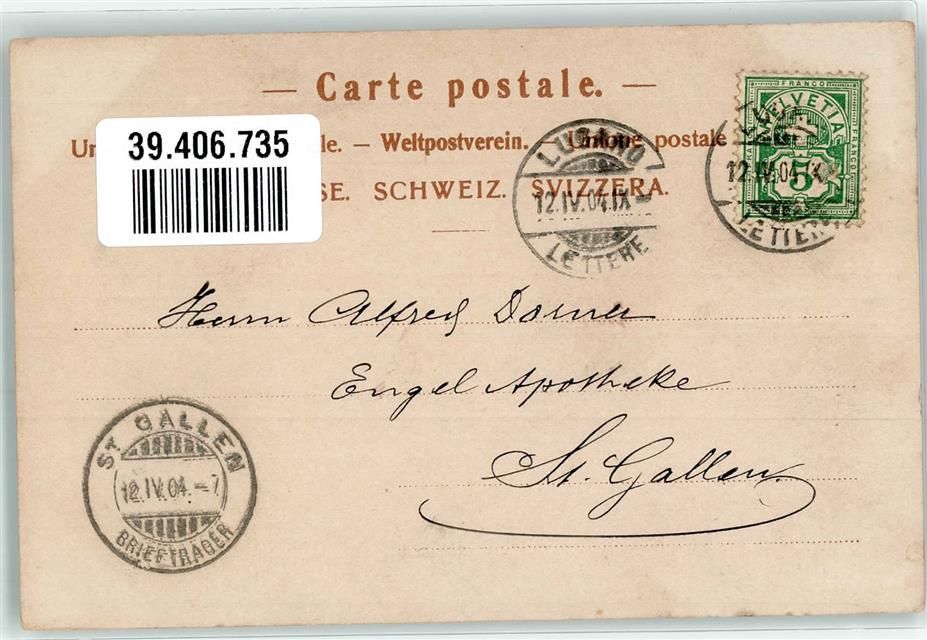 — Carte postale. —
39.406.735
Un le. — Weltpostverein. — Unione postale
SE. SCHWEIZ. SVIZZERA.
FRANCO
HELVETIA
5
LUGANO
12.IV.04.IX
LETTERE
12.IV.04.IX
LETTERE
Herrn Alfred Dorner
Engel Apotheke
St. Gallen
ST GALLEN
12.IV.04.–7
BRIEFTRÄGER